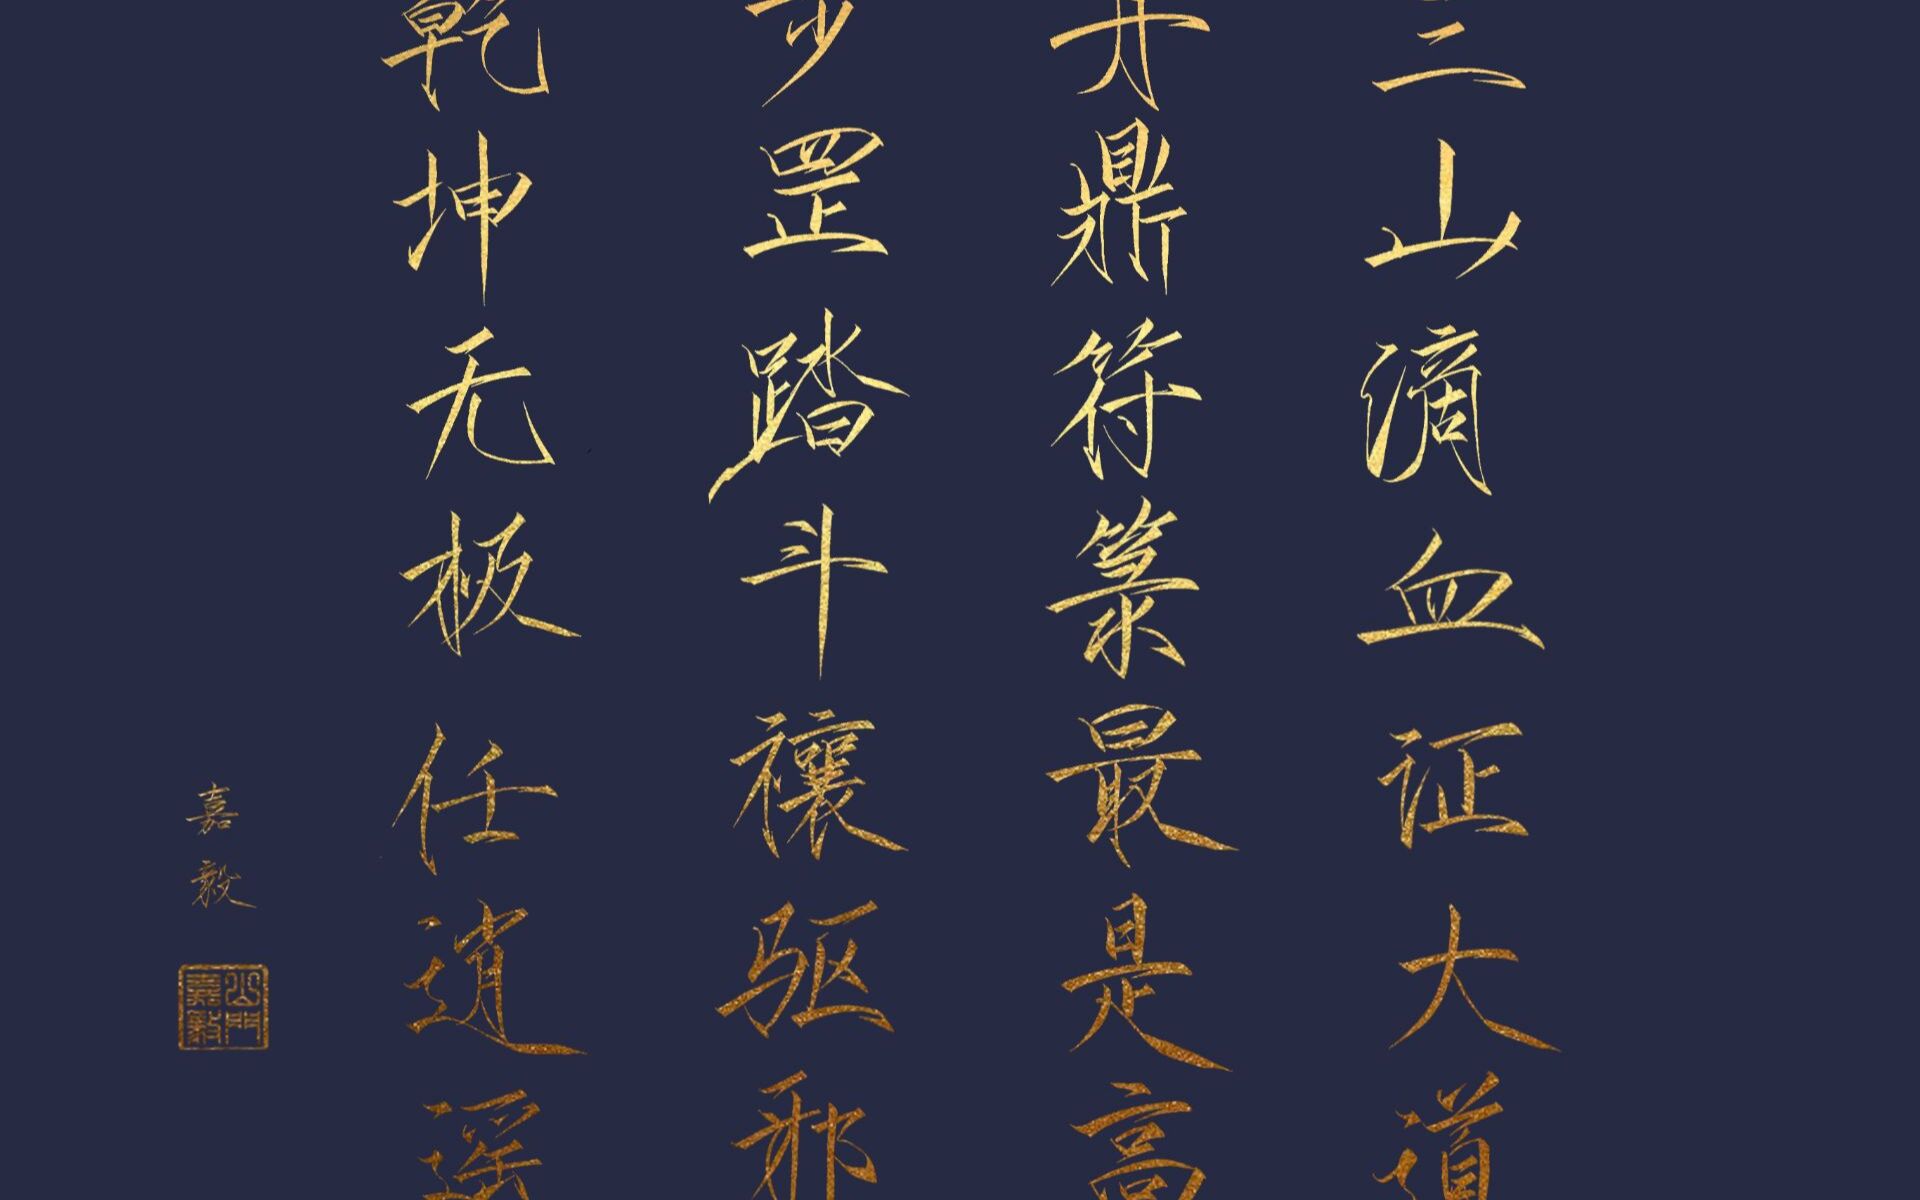 三山滴血证大道
丹鼎符箓最是高
步罡踏斗禳驱邪
乾坤无极任逍遥
嘉毅
山門嘉毅